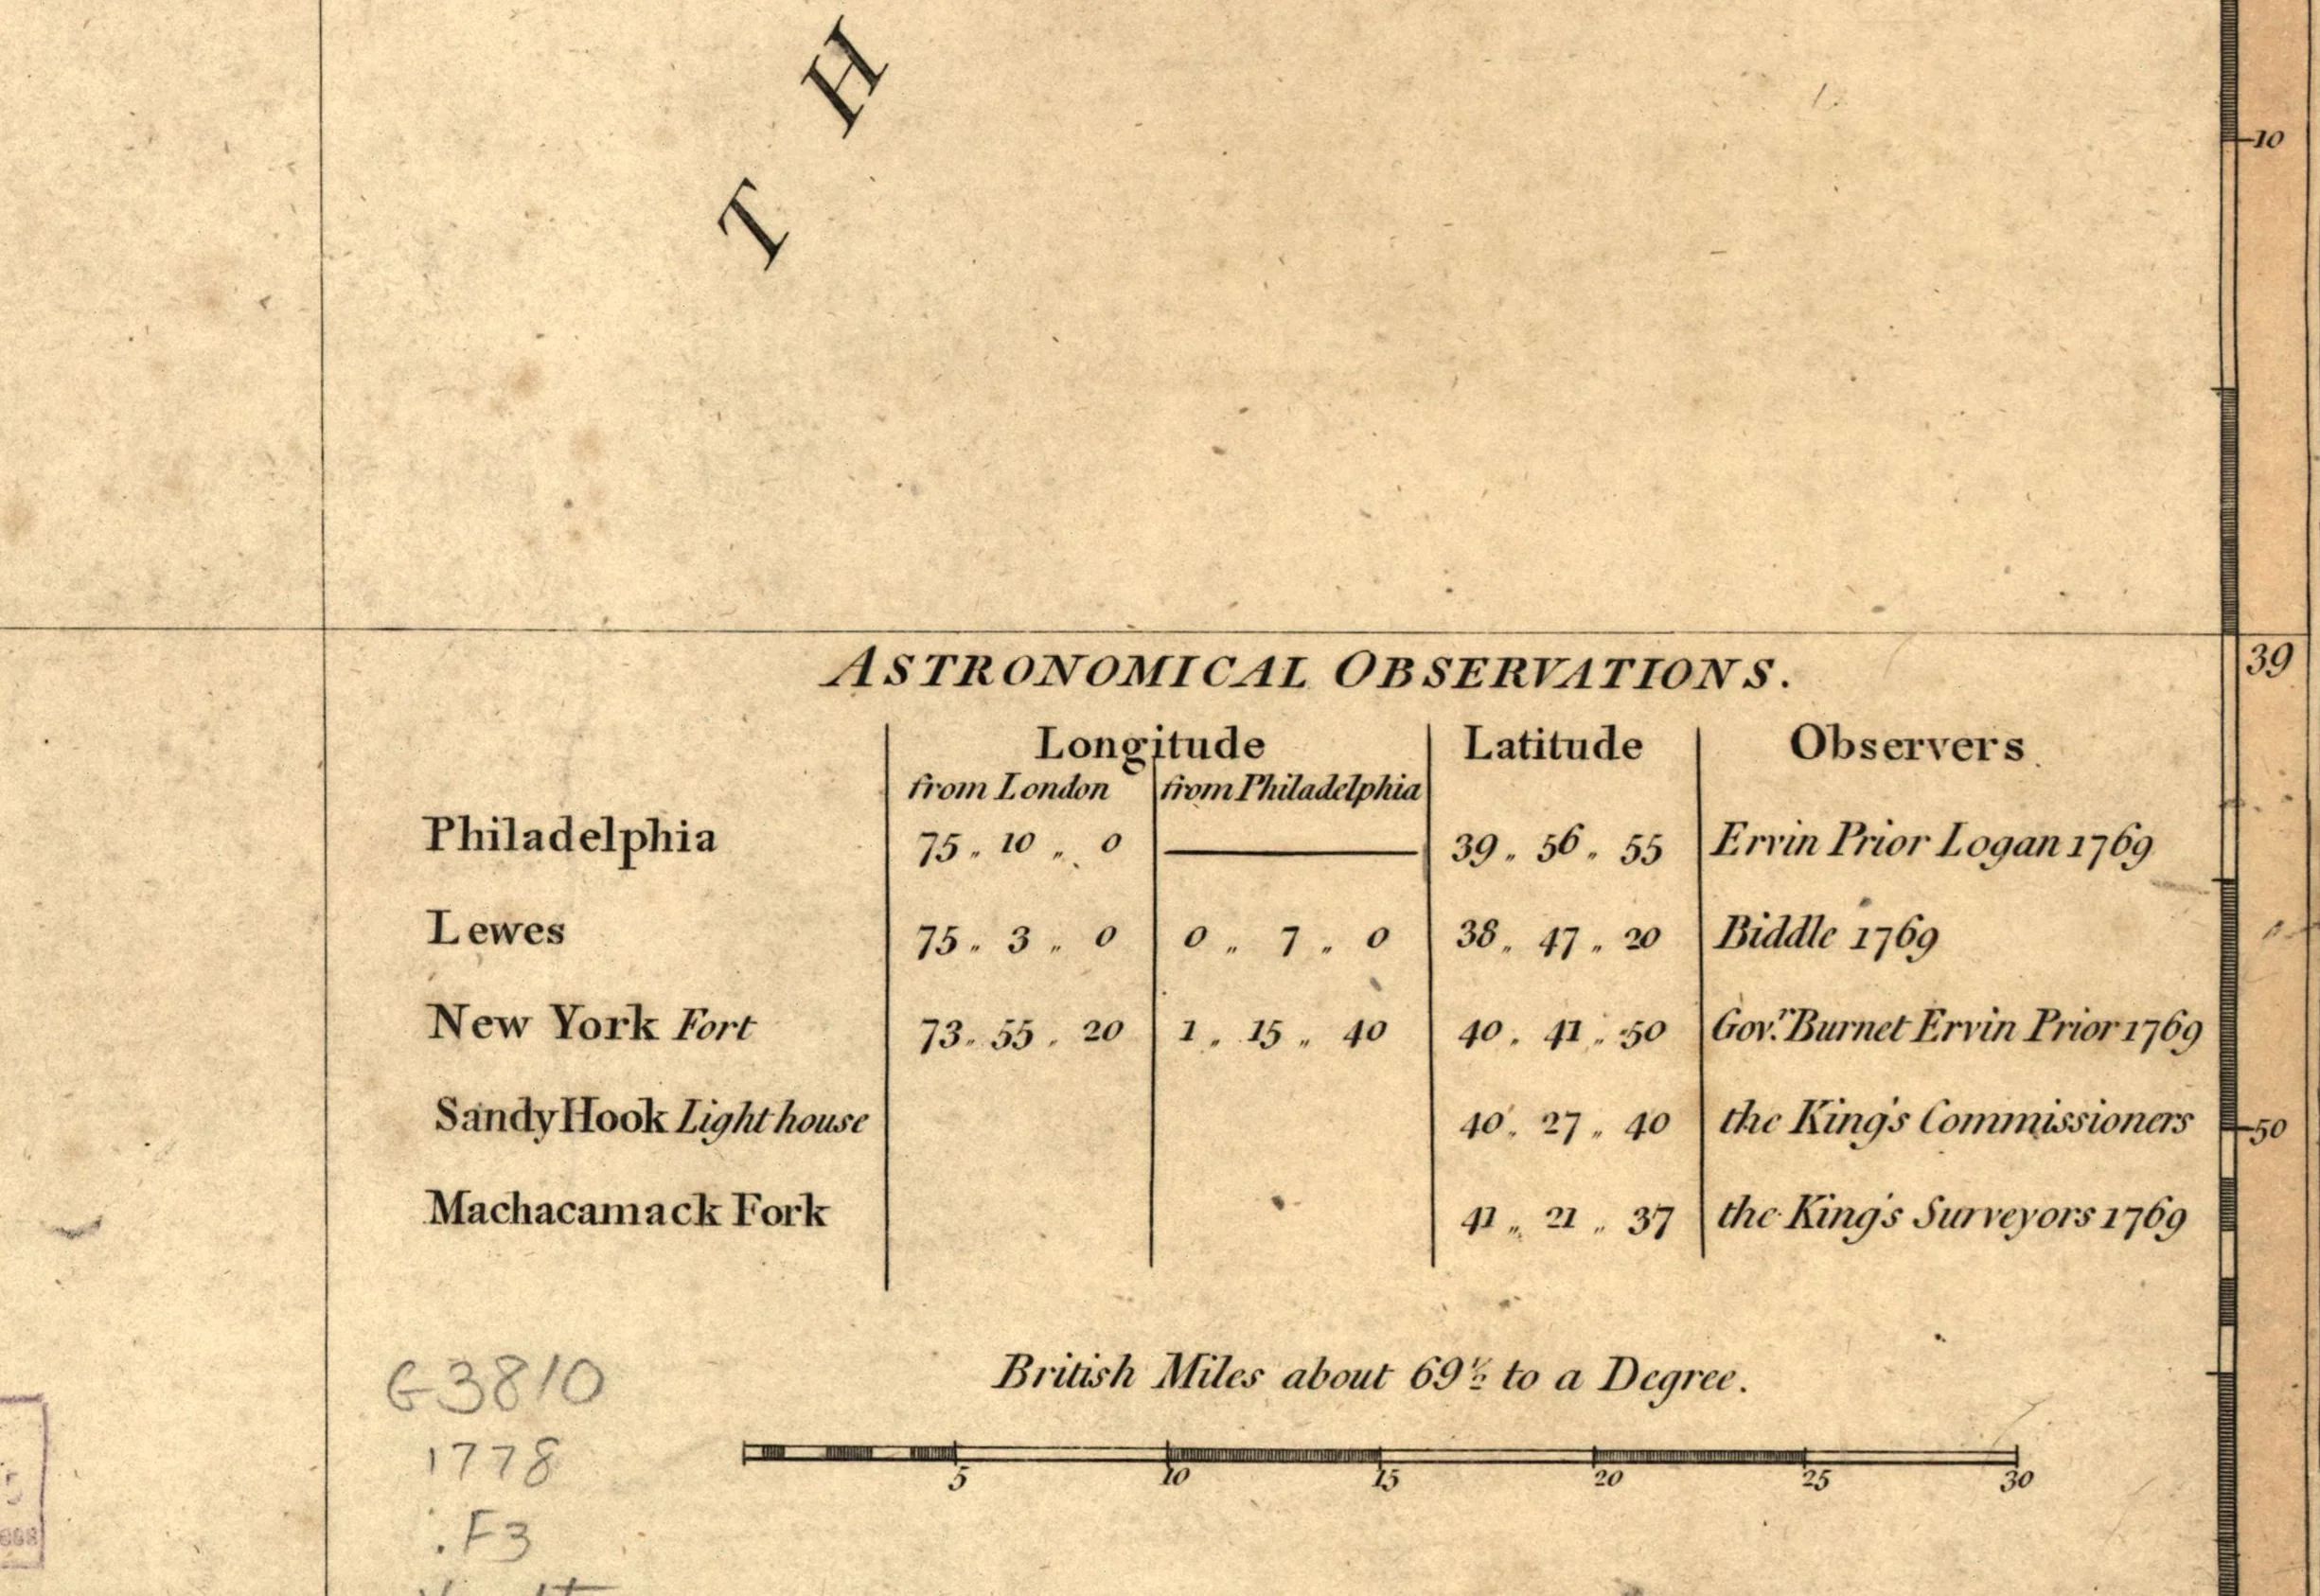 T H
10
39
ASTRONOMICAL OBSERVATIONS.
Longitude Latitude Observers
from London from Philadelphia
Philadelphia 75 „ 10 „ 0 39 „ 56 „ 55 Ervin Prior Logan 1769
Lewes 75 „ 3 „ 0 0 „ 7 „ 0 38 „ 47 „ 20 Biddle 1769
New York Fort 73 „ 55 „ 20 1 „ 15 „ 40 40 „ 41 „ 50 Gov.r Burnet Ervin Prior 1769
Sandy Hook Light house 40 „ 27 „ 40 the King's Commissioners
50
Machacamack Fork 41 „ 21 „ 37 the King's Surveyors 1769
British Miles about 69½ to a Degree.
5 10 15 20 25 30
G3810
1778
.F3